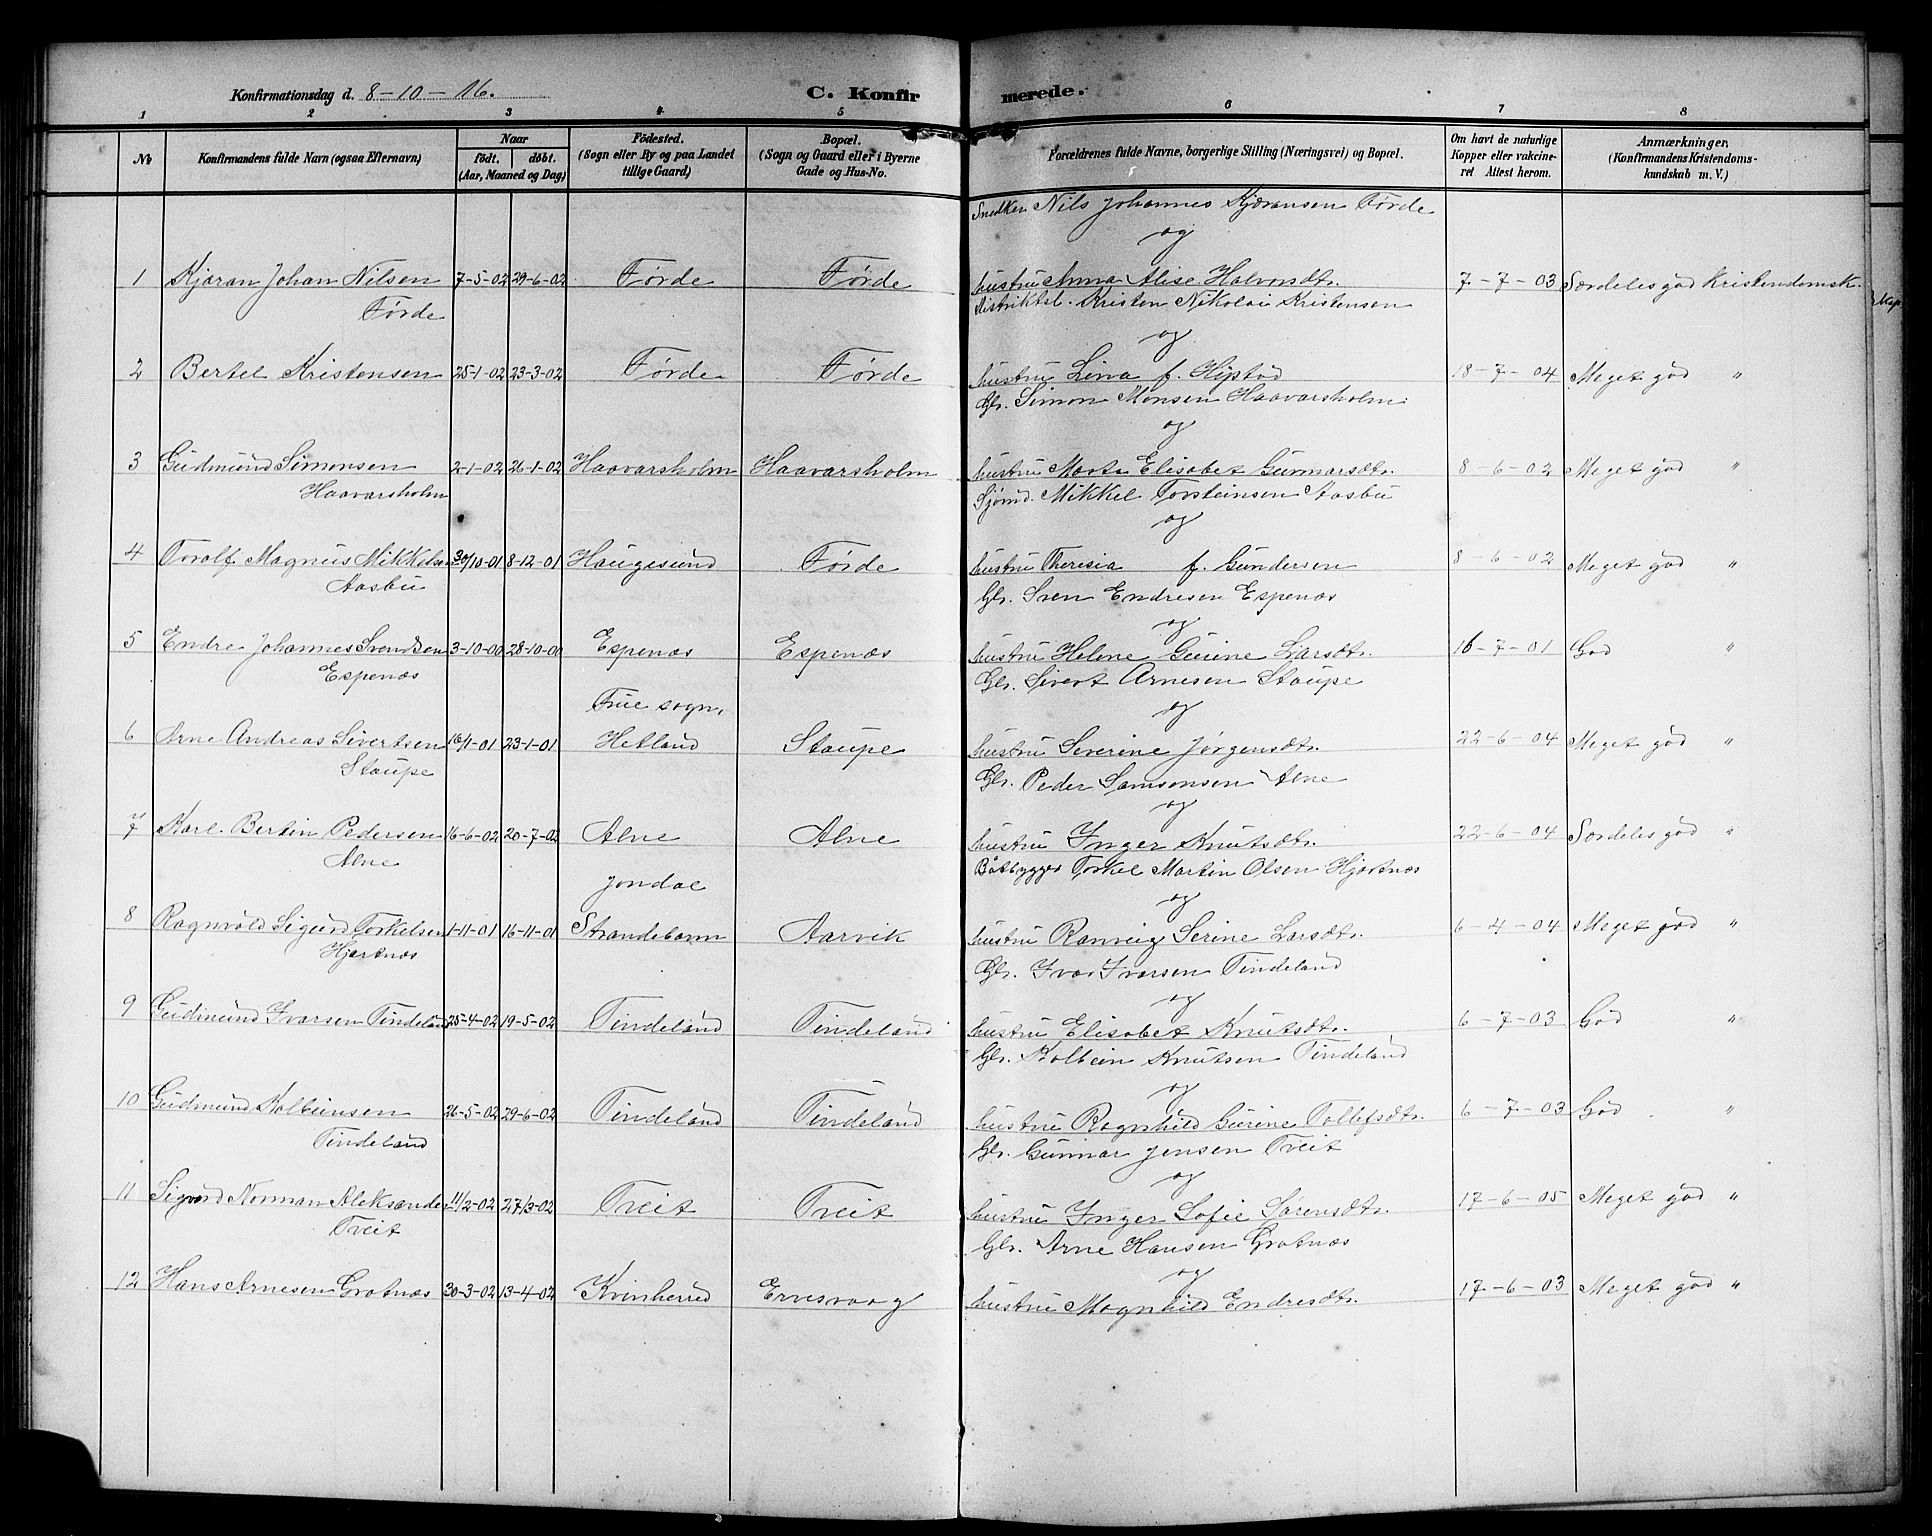 Konfirmationsdag d. 8-10-16.
C. Konfirmerede.
1 2 3 4 5 6 7 8
No
Konfirmandens fulde Navn (ogsaa Efternavn)
Naar
født. døbt.
(Aar, Maaned og Dag)
Fødested.
(Sogn eller By og paa Landet
tillige Gaard)
Bopæl.
(Sogn og Gaard eller i Byerne
Gade og Hus-No.
Forældrenes fulde Navne, borgerlige Stilling (Næringsvei) og Bopæl.
Om havt de naturlige
Kopper eller vakcine-
ret Attest herom.
Anmærkninger.
(Konfirmandens Kristendoms-
kundskab m. V.)
Snedker Nils Johannes Kjæransen Førde
og
1 Kjæran Johan Nilsen 7-5-02 29-6-02 Førde Førde hustru Anna Alise Halvorsdtr. 7-7-03 Særdeles god Kristendomsk.
Førde
Distriktsl. Kristen Nikolai Kristensen
og
2 Bertel Kristensen 25-1-02 23-3-02 Førde Førde hustru Lina f. 18-7-04 Meget god "
Gbr. Simon Monsen Haavarsholm
og
3 Gudmund Simonsen 2-1-02 26-1-02 Haavarsholm Haavarsholm hustru Marta Elisabet Gunnarsdtr. 8-6-02 Meget god "
Haavarsholm
Sjømd. Mikkel Torsteinsen Aasbu
og
4 Torolf Magnus Mikkelsen 30/10-01 8-12-01 Haugesund Førde hustru Theresia f. Gundersen 8-6-02 Meget god "
Aasbu
Gbr. Sven Endresen Espenæs
og
5 Endre Johannes Svendsen 3-10-00 28-10-00 Espenæs Espenæs hustru Helene Gurine Larsdtr. 16-7-01 God "
Espenæs
Gbr. Sivert Arnesen Staupe
Frue sogn,
og
6 Arne Andreas Sivertsen 16/1-01 23-1-01 Hetland Staupe hustru Severine Jørgensdtr. 22-6-04 Meget god "
Staupe
Gbr. Peder Samsonsen Alne
og
7 Karl Bertin Pedersen 16-6-02 20-7-02 Alne Alne hustru Inger Knutsdtr. 22-6-04 Særdeles god "
Alne
Båtbygger Torkel Martin Olsen Hjartnæs
Jondal
og
8 Ragnvald Sigurd Torkelsen 1-11-01 16-11-01 Strandebarm Aarvik hustru Ranveig Serine Larsdtr. 6-4-04 Meget god "
Hjartnæs
Gbr. Ivar Ivarsen Tindeland
og
9 Gudmund Ivarsen Tindeland 25-4-02 19-5-02 Tindeland Tindeland hustru Elisabet Knutsdtr. 6-7-03 God "
Gbr. Kolbein Knutsen Tindeland
og
10 Gudmund Kolbeinsen 26-5-02 29-6-02 Tindeland Tindeland hustru Ragnhild Gurine Tollefsdtr. 6-7-03 God "
Tindeland
Gbr. Gunnar Jensen Tveit
og
11 Sigurd Norman Aleksander 11/2-02 27/3-02 Tveit Tveit hustru Inger Sofie Sørensdtr. 17-6-05 Meget god "
Tveit
Gbr. Arne Hansen Gratnæs
og
12 Hans Arnesen Gratnæs 30-3-02 13-4-02 Kvinherred Ervesvaag hustru Magnhild Endresdtr. 17-6-03 Meget god "